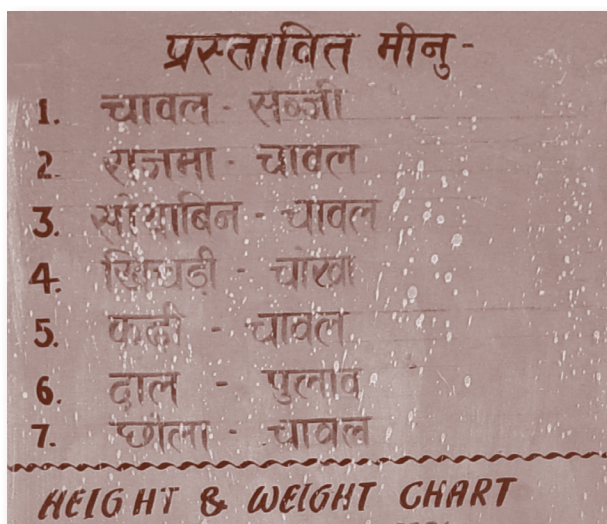 प्रस्तावित मीनु -
1. चावल - सब्जी
2. राजमा - चावल
3. सोयाबिन - चावल
4. खिचड़ी - चोखा
5. कढी - चावल
6. दाल - पुलाव
7. छोला - चावल
HEIGHT & WEIGHT CHART